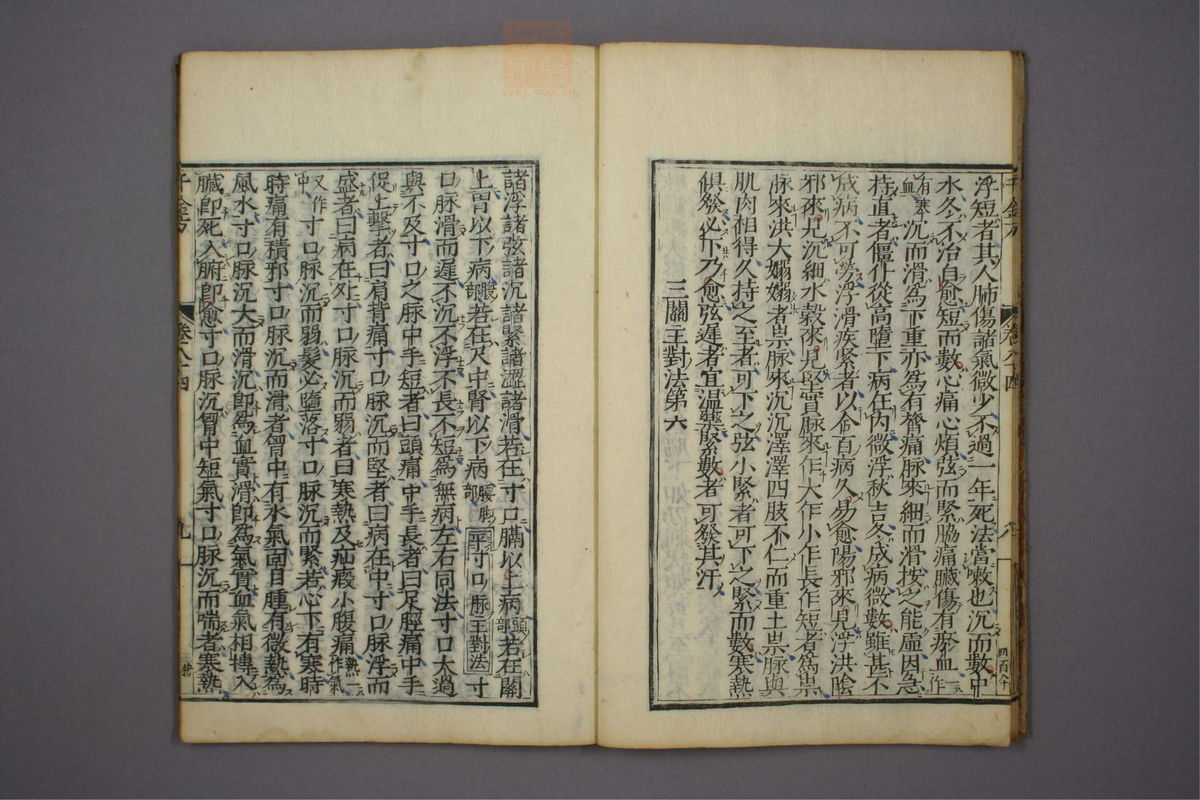 浮短者其人肺傷諸氣微少不過一年死法當嗽也沉而數中
水冬不治自愈短而數心痛心煩弦而緊脇痛臟傷有瘀血一作
有寒血沉而滑爲下重亦爲有膂痛脉來細而滑按之能虛因急
持直者僵仆從高墮下病在內微浮秋吉冬成病微數雖甚不
成病不可勞浮滑疾緊者以合百病久易愈陽邪來見浮洪陰
邪來見沉細水穀來見堅實脉來乍大乍小乍長乍短者爲祟
脉來洪大嫋嫋者祟脉來沉沉澤澤四肢不仁而重土祟脉與
肌肉相得久持之至者可下之弦小緊者可下之緊而數寒熱
俱發必下乃愈弦遲者宜溫藥緊數者可發其汗
三關主對法第六
千金方
卷八十四
八
四百八十
諸浮諸弦諸沉諸緊諸澀諸滑若在寸口膈以上病頭部若在關
上胃以下病腹部若在尺中腎以下病腰脚部平寸口脉主對法寸
口脉滑而遲不沉不浮不長不短爲無病左右同法寸口太過
與不及寸口之脉中手短者曰頭痛中手長者曰足脛痛中手
促上擊者曰肩背痛寸口脉沉而堅者曰病在中寸口脉浮而
盛者曰病在外寸口脉沉而弱者曰寒熱及疝瘕小腹痛熱一作氣
又作中寸口脉沉而弱髮必墮落寸口脉沉而緊若心下有寒時
時痛有積邪寸口脉沉而滑者胷中有水氣面目腫有微熱爲
風水寸口脉沉大而滑沉卽爲血實滑卽爲氣實血氣相摶入
臟卽死入腑卽愈寸口脉沉胷中短氣寸口脉沉而喘者寒熱
千金方
卷八十四
九